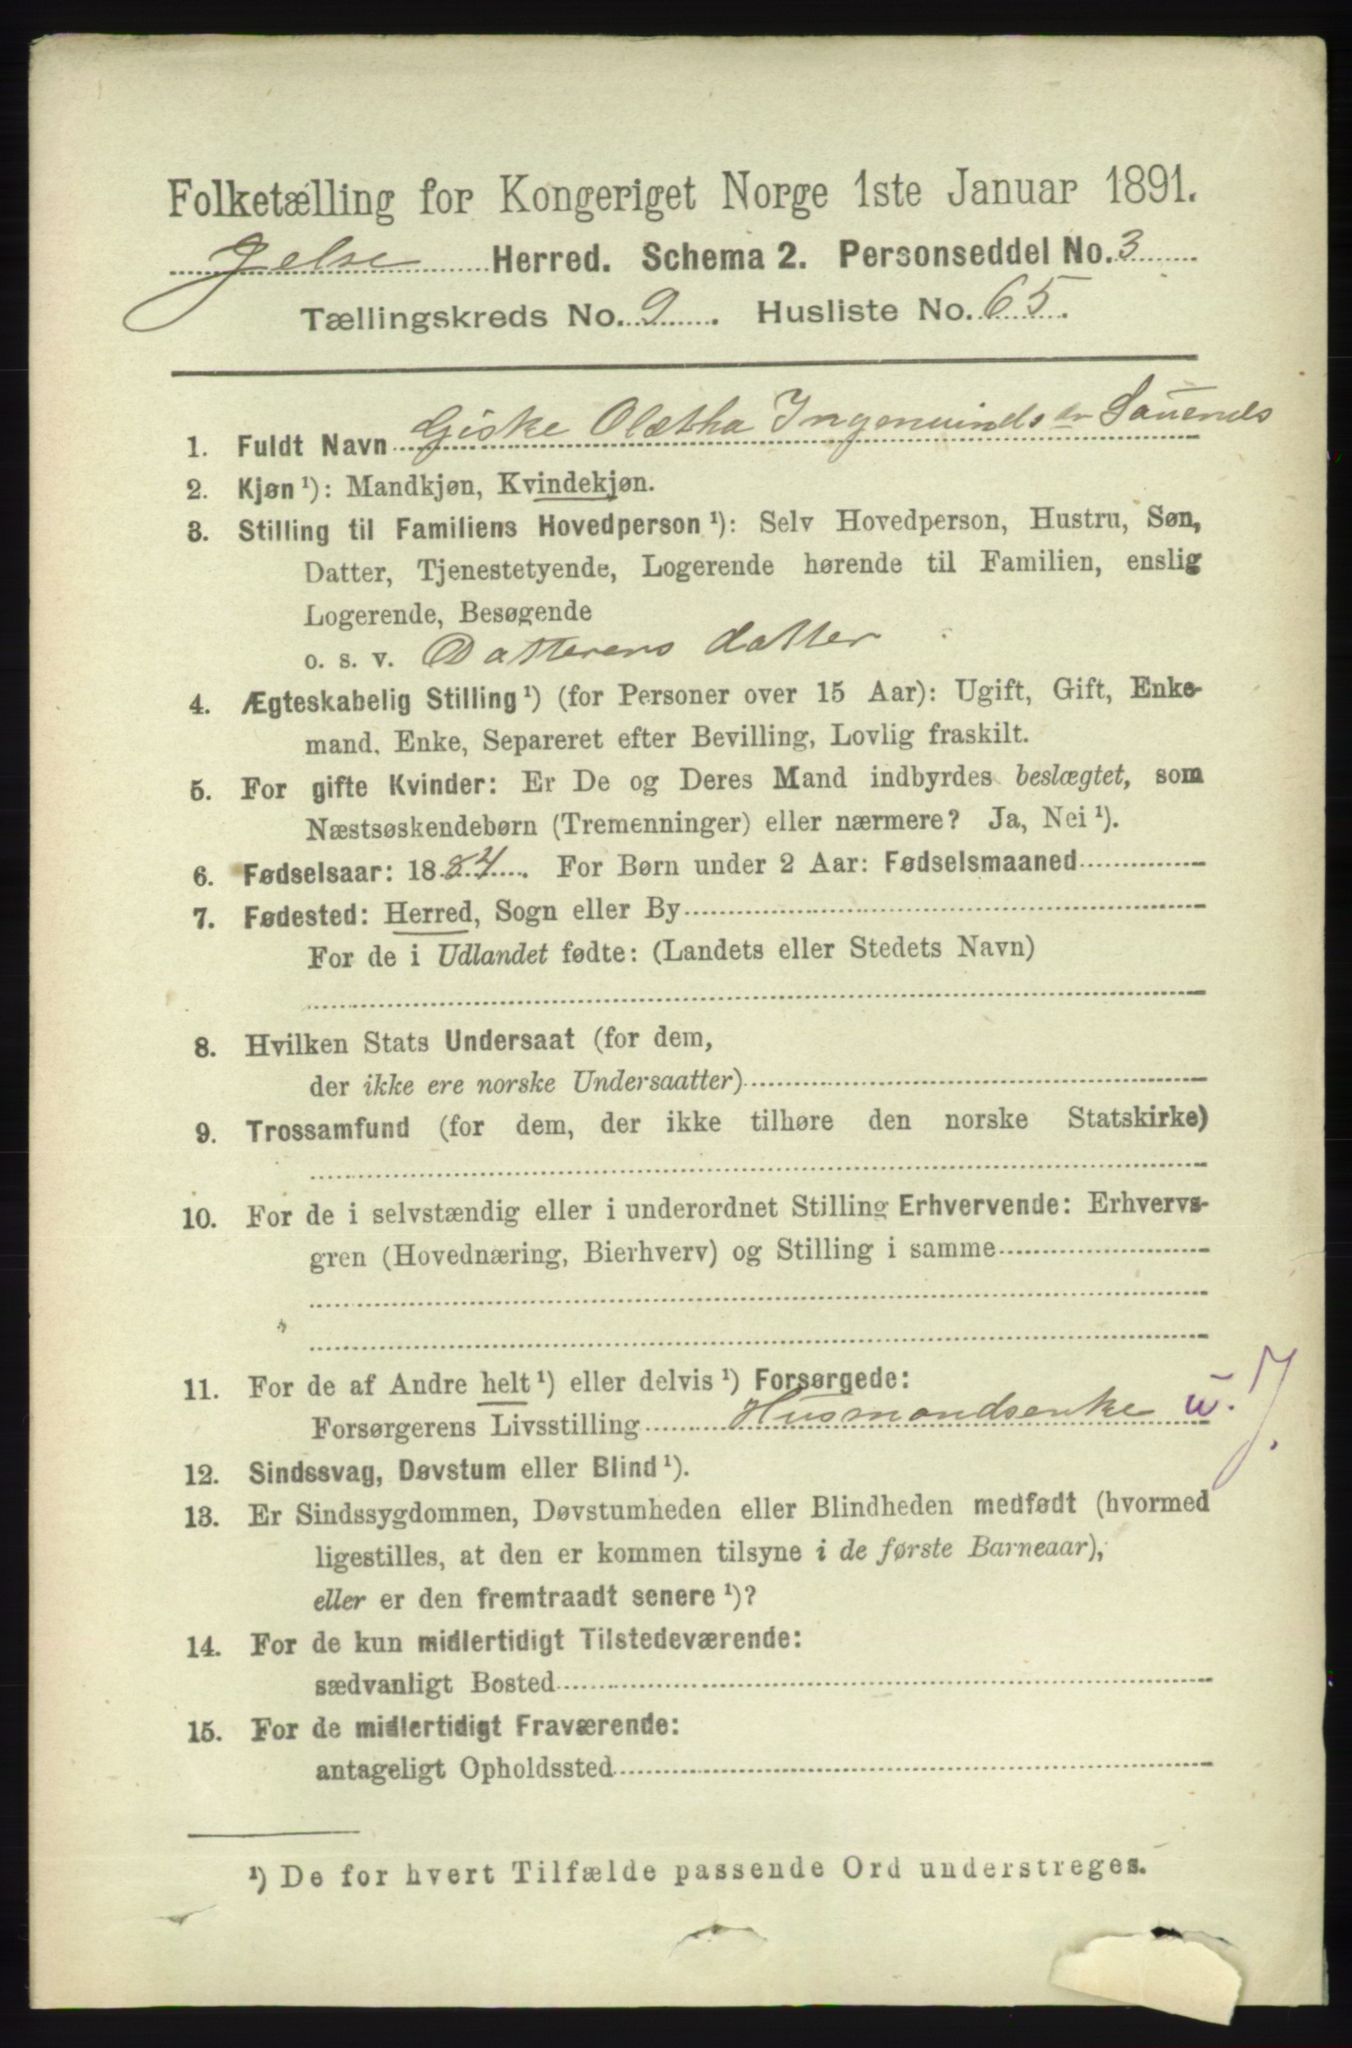 Folketælling for Kongeriget Norge 1ste Januar 1891.
Jelse Herred. Schema 2. Personseddel No. 3
Tællingskreds No. 9. Husliste No. 65.
1. Fuldt Navn Giske Olætha Ingemunds dr Sauenes
2. Kjøn ¹): Mandkjøn, Kvindekjøn.
3. Stilling til Familiens Hovedperson ¹): Selv Hovedperson, Hustru, Søn,
Datter, Tjenestetyende, Logerende hørende til Familien, enslig
Logerende, Besøgende
o. s. v. Datterens datter
4. Ægteskabelig Stilling ¹) (for Personer over 15 Aar): Ugift, Gift, Enke-
mand, Enke, Separeret efter Bevilling, Lovlig fraskilt.
5. For gifte Kvinder: Er De og Deres Mand indbyrdes beslægtet, som
Næstsøskendebørn (Tremenninger) eller nærmere? Ja, Nei ¹).
6. Fødselsaar: 1884. For Børn under 2 Aar: Fødselsmaaned
7. Fødested: Herred, Sogn eller By
For de i Udlandet fødte: (Landets eller Stedets Navn)
8. Hvilken Stats Undersaat (for dem,
der ikke ere norske Undersaatter)
9. Trossamfund (for dem, der ikke tilhøre den norske Statskirke)
10. For de i selvstændig eller i underordnet Stilling Erhvervende: Erhvervs-
gren (Hovednæring, Bierhverv) og Stilling i samme
11. For de af Andre helt ¹) eller delvis ¹) Forsørgede:
Forsørgerens Livsstilling Husmandsenke u. J.
12. Sindssvag, Døvstum eller Blind ¹).
13. Er Sindssygdommen, Døvstumheden eller Blindheden medfødt (hvormed
ligestilles, at den er kommen tilsyne i de første Barneaar),
eller er den fremtraadt senere ¹)?
14. For de kun midlertidigt Tilstedeværende:
sædvanligt Bosted
15. For de midlertidigt Fraværende:
antageligt Opholdssted
¹) De for hvert Tilfælde passende Ord understreges.